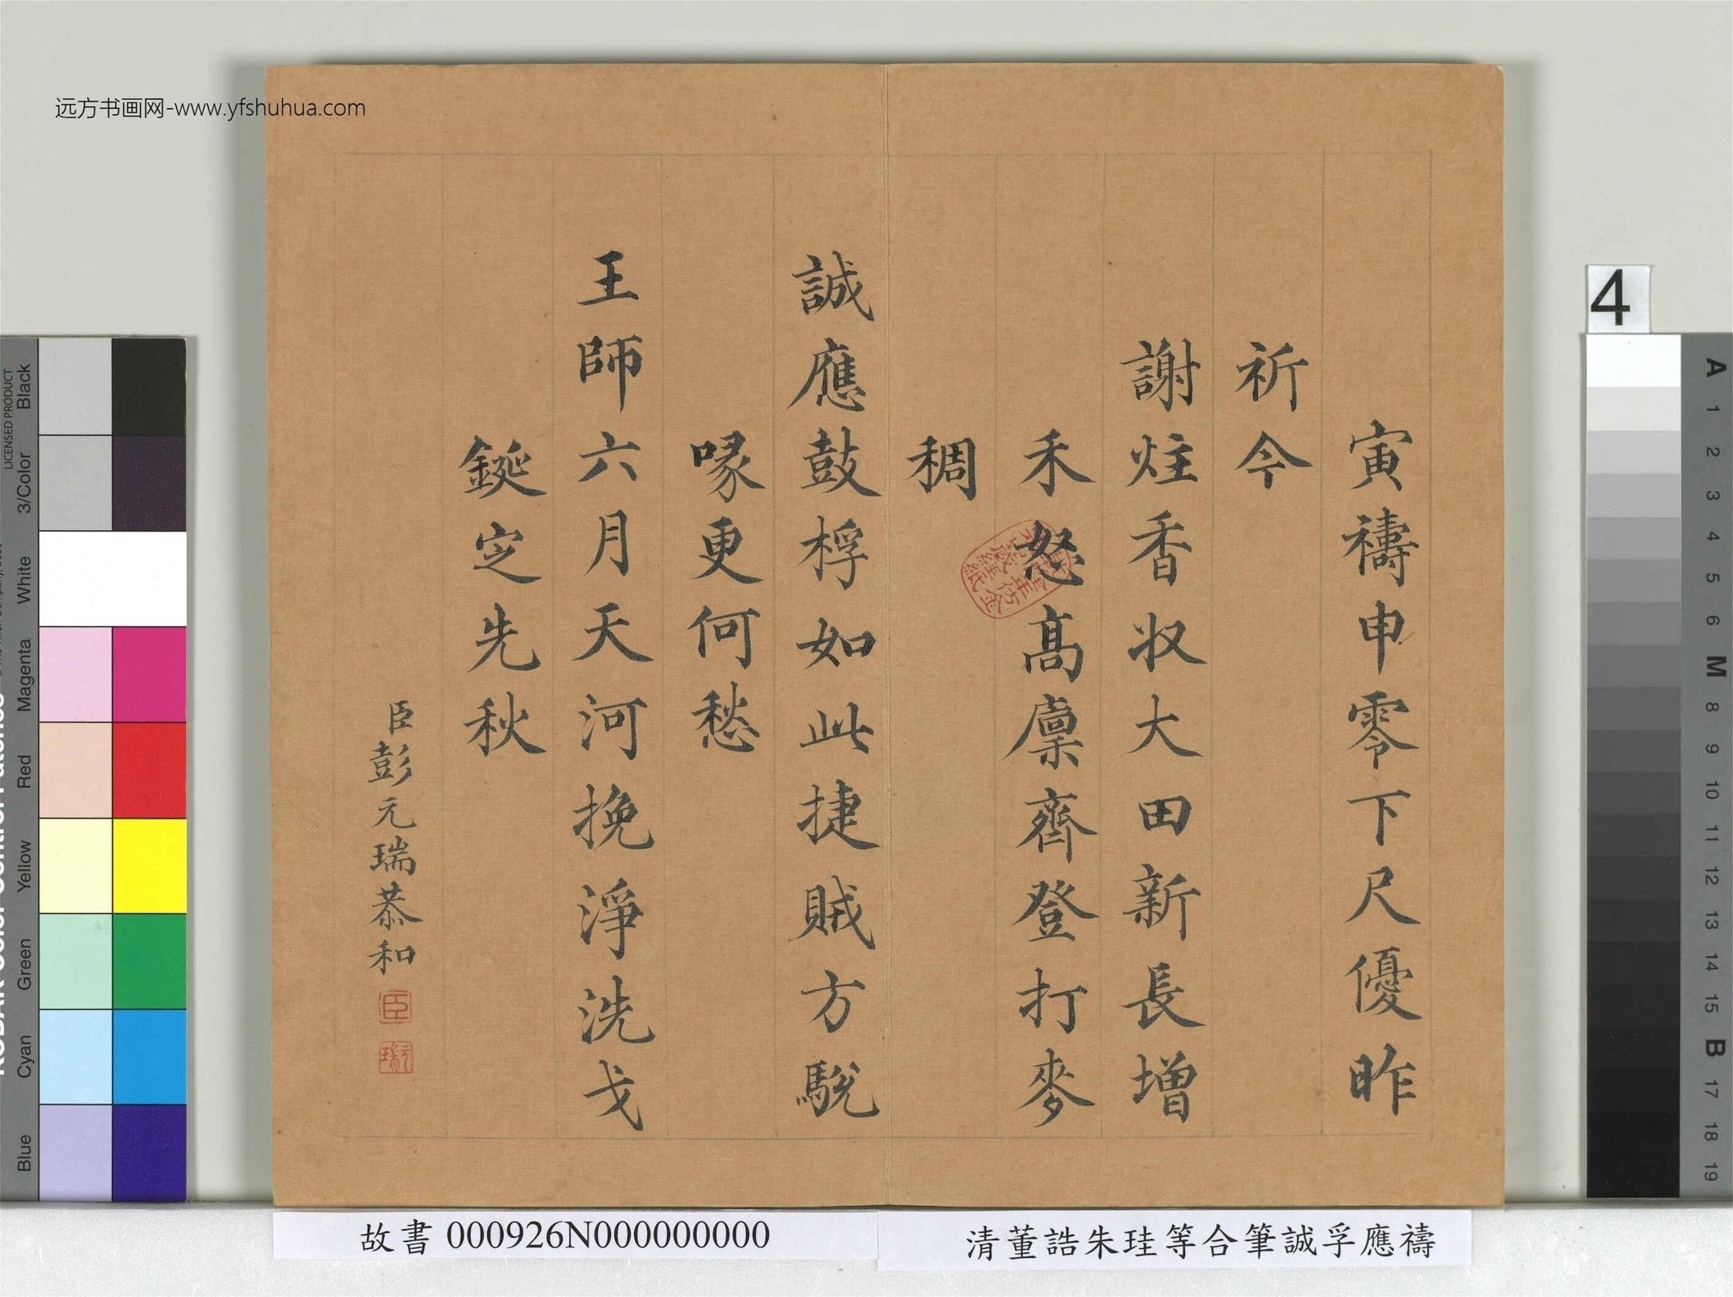 远方书画网-www.yfshuhua.com
寅禱申零下尺優昨
祈今
謝炷香収大田新長増
禾怒髙廩齊登打麥
稠
誠應鼓桴如此捷賊方駾
喙更何愁
王師六月天河挽淨洗戈
鋋定先秋
臣彭元瑞恭和
臣
元瑞
4
故書 000926N000000000
清董誥朱珪等合筆誠孚應禱
LICENSED PRODUCT
Black
3/Color
White
Magenta
Red
Yellow
Green
Cyan
Blue
A
1
2
3
4
5
6
M
8
9
10
11
12
13
14
15
B
17
18
19